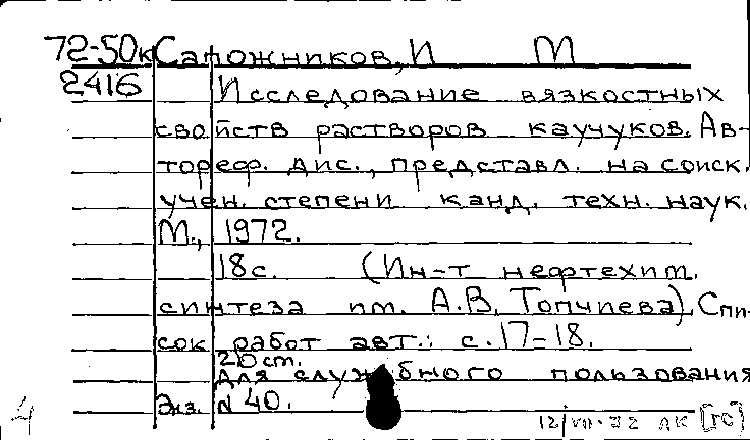 72-50к Сапожников, И М
2416 Исследование вязкостных
свойств растворов каучуков. Ав-
тореф. дис., представл. на соиск.
учен. степени канд. техн. наук.
М., 1972.
18 с. (Ин-т нефтехим.
синтеза им. А.В. Топчиева). Спи-
сок работ авт.: с. 17-18.
20 ст.
Для служебного пользования
Экз. № 40.
4 12/VII-72 ЛК [ГС]